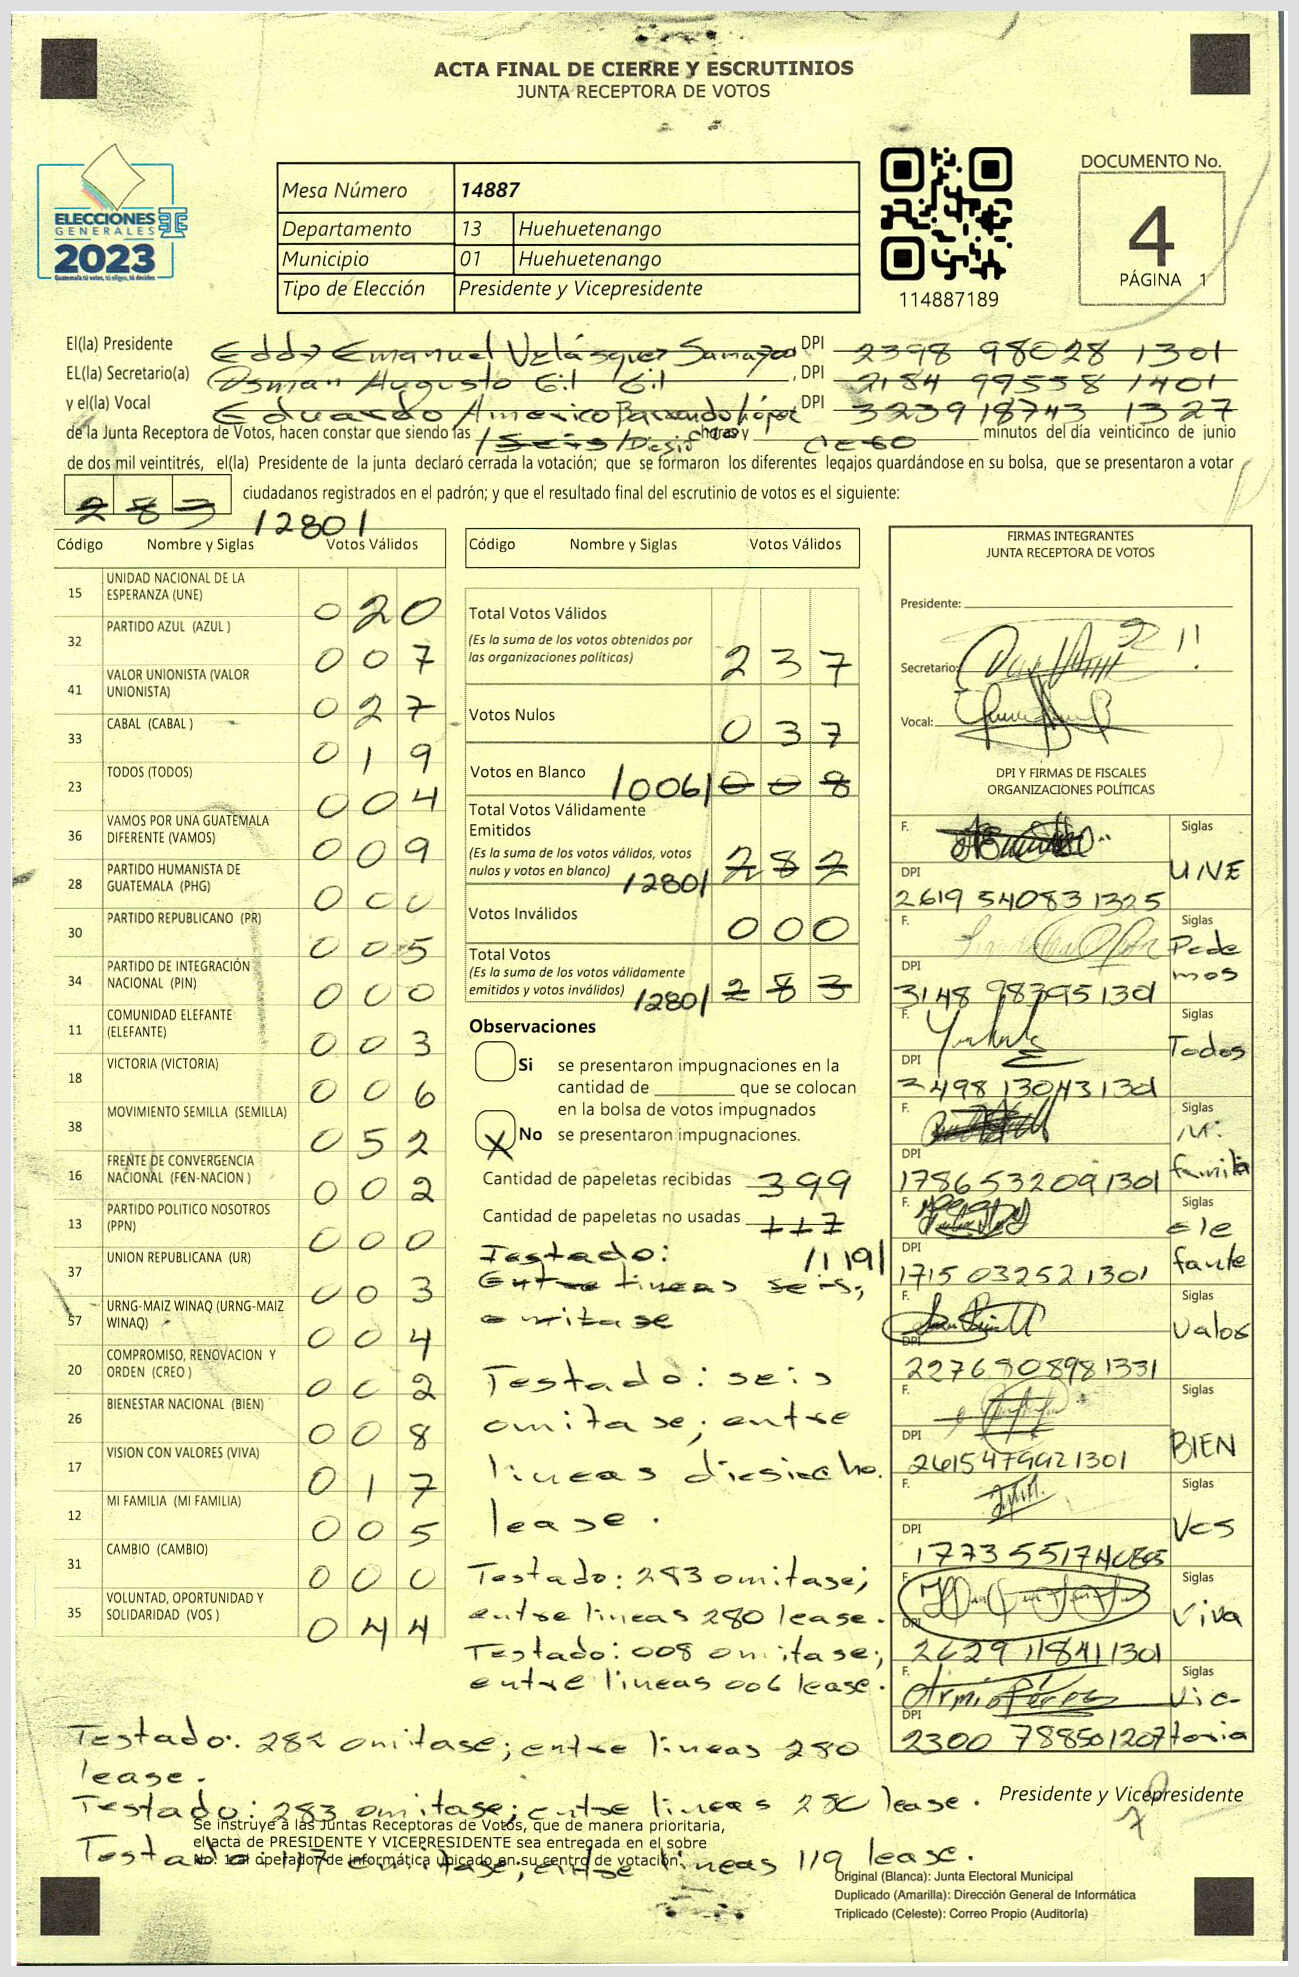 ACTA FINAL DE CIERRE Y ESCRUTINIOS
JUNTA RECEPTORA DE VOTOS
ELECCIONES
GENERALES
2023
Guatemala tú votas, tú eliges, tú decides
Mesa Número 14887
Departamento 13 Huehuetenango
Municipio 01 Huehuetenango
Tipo de Elección Presidente y Vicepresidente
114887189
DOCUMENTO No.
4
PÁGINA 1
El(la) Presidente Eddy Emanuel Velásquez Samayoa DPI 2398 98028 1301
EL(la) Secretario(a) Osman Augusto Gil Gil , DPI 2184 99558 1401
y el(la) Vocal Eduardo Américo Barrondo López DPI 3239 18743 1327
de la Junta Receptora de Votos, hacen constar que siendo las /Seis/ horas y cero minutos del día veinticinco de junio
de dos mil veintitrés, el(la) Presidente de la junta declaró cerrada la votación; que se formaron los diferentes legajos guardándose en su bolsa, que se presentaron a votar
283 /280/ ciudadanos registrados en el padrón; y que el resultado final del escrutinio de votos es el siguiente:
Código Nombre y Siglas Votos Válidos
15 UNIDAD NACIONAL DE LA ESPERANZA (UNE) 020
32 PARTIDO AZUL (AZUL ) 007
41 VALOR UNIONISTA (VALOR UNIONISTA) 027
33 CABAL (CABAL ) 019
23 TODOS (TODOS) 004
36 VAMOS POR UNA GUATEMALA DIFERENTE (VAMOS) 009
28 PARTIDO HUMANISTA DE GUATEMALA (PHG) 000
30 PARTIDO REPUBLICANO (PR) 005
34 PARTIDO DE INTEGRACIÓN NACIONAL (PIN) 000
11 COMUNIDAD ELEFANTE (ELEFANTE) 003
18 VICTORIA (VICTORIA) 006
38 MOVIMIENTO SEMILLA (SEMILLA) 052
16 FRENTE DE CONVERGENCIA NACIONAL (FCN-NACION ) 002
13 PARTIDO POLITICO NOSOTROS (PPN) 000
37 UNION REPUBLICANA (UR) 003
57 URNG-MAIZ WINAQ (URNG-MAIZ WINAQ) 004
20 COMPROMISO, RENOVACION Y ORDEN (CREO ) 002
26 BIENESTAR NACIONAL (BIEN) 008
17 VISION CON VALORES (VIVA) 017
12 MI FAMILIA (MI FAMILIA) 005
31 CAMBIO (CAMBIO) 000
35 VOLUNTAD, OPORTUNIDAD Y SOLIDARIDAD (VOS ) 044
Código Nombre y Siglas Votos Válidos
Total Votos Válidos
(Es la suma de los votos obtenidos por
las organizaciones políticas) 237
Votos Nulos 037
Votos en Blanco /006/ 008
Total Votos Válidamente
Emitidos
(Es la suma de los votos válidos, votos
nulos y votos en blanco) /280/ 282
Votos Inválidos 000
Total Votos
(Es la suma de los votos válidamente
emitidos y votos inválidos) /280/ 283
Observaciones
Si se presentaron impugnaciones en la
cantidad de ________ que se colocan
en la bolsa de votos impugnados
X No se presentaron impugnaciones.
Cantidad de papeletas recibidas 399
Cantidad de papeletas no usadas 117
/119/
Testado:
Entre lineas seis,
omitase
Testado: seis
omitase; entre
lineas diesiocho.
lease.
Testado: 283 omitase;
entre lineas 280 lease.
Testado: 008 omitase;
entre lineas 006 lease.
Testado: 282 omitase; entre lineas 280
lease.
Testado: 283 omitase; entre lineas 280 lease.
Testado: 117 omitase, entre lineas 119 lease.
FIRMAS INTEGRANTES
JUNTA RECEPTORA DE VOTOS
Presidente:
Secretario:
Vocal:
DPI Y FIRMAS DE FISCALES
ORGANIZACIONES POLÍTICAS
F. Siglas
DPI UNE
2619 54083 1325
F. Siglas
DPI Podemos
3148 98395 1301
F.
DPI Todos
3498 13043 1301
F. Siglas
DPI Mi familia
1786 53209 1301
F. Siglas
DPI elefante
1715 03252 1301
F. Siglas
DPI Valor
2276 90898 1331
F. Siglas
DPI BIEN
2615 47992 1301
F. Siglas
DPI Vos
1773 55174
F. Siglas
DPI Viva
2629 11841 1301
F. Siglas
DPI Victoria
2300 78850 1207
Presidente y Vicepresidente
Se instruye a las Juntas Receptoras de Votos, que de manera prioritaria,
el acta de PRESIDENTE Y VICEPRESIDENTE sea entregada en el sobre
No. 1 al operador de informática ubicado en su centro de votación.
Original (Blanca): Junta Electoral Municipal
Duplicado (Amarilla): Dirección General de Informática
Triplicado (Celeste): Correo Propio (Auditoría)